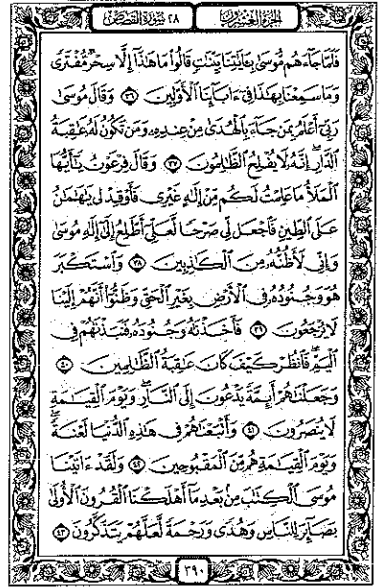 الجزء العشرون
٢٨ سورة القصص
فَلَمَّا جَاءَهُم مُّوسَىٰ بِـَٔايَٰتِنَا بَيِّنَٰتٍ قَالُوا۟ مَا هَٰذَآ إِلَّا سِحْرٌ مُّفْتَرًى
وَمَا سَمِعْنَا بِهَٰذَا فِىٓ ءَابَآئِنَا ٱلْأَوَّلِينَ ٣٦ وَقَالَ مُوسَىٰ
رَبِّىٓ أَعْلَمُ بِمَن جَآءَ بِٱلْهُدَىٰ مِنْ عِندِهِۦ وَمَن تَكُونُ لَهُۥ عَٰقِبَةُ
ٱلدَّارِ ۖ إِنَّهُۥ لَا يُفْلِحُ ٱلظَّٰلِمُونَ ٣٧ وَقَالَ فِرْعَوْنُ يَٰٓأَيُّهَا
ٱلْمَلَأُ مَا عَلِمْتُ لَكُم مِّنْ إِلَٰهٍ غَيْرِى فَأَوْقِدْ لِى يَٰهَٰمَٰنُ
عَلَى ٱلطِّينِ فَٱجْعَل لِّى صَرْحًا لَّعَلِّىٓ أَطَّلِعُ إِلَىٰٓ إِلَٰهِ مُوسَىٰ
وَإِنِّى لَأَظُنُّهُۥ مِنَ ٱلْكَٰذِبِينَ ٣٨ وَٱسْتَكْبَرَ
هُوَ وَجُنُودُهُۥ فِى ٱلْأَرْضِ بِغَيْرِ ٱلْحَقِّ وَظَنُّوٓا۟ أَنَّهُمْ إِلَيْنَا
لَا يُرْجَعُونَ ٣٩ فَأَخَذْنَٰهُ وَجُنُودَهُۥ فَنَبَذْنَٰهُمْ فِى
ٱلْيَمِّ ۖ فَٱنظُرْ كَيْفَ كَانَ عَٰقِبَةُ ٱلظَّٰلِمِينَ ٤٠
وَجَعَلْنَٰهُمْ أَئِمَّةً يَدْعُونَ إِلَى ٱلنَّارِ ۖ وَيَوْمَ ٱلْقِيَٰمَةِ
لَا يُنصَرُونَ ٤١ وَأَتْبَعْنَٰهُمْ فِى هَٰذِهِ ٱلدُّنْيَا لَعْنَةً ۖ
وَيَوْمَ ٱلْقِيَٰمَةِ هُم مِّنَ ٱلْمَقْبُوحِينَ ٤٢ وَلَقَدْ ءَاتَيْنَا
مُوسَى ٱلْكِتَٰبَ مِنۢ بَعْدِ مَآ أَهْلَكْنَا ٱلْقُرُونَ ٱلْأُولَىٰ
بَصَآئِرَ لِلنَّاسِ وَهُدًى وَرَحْمَةً لَّعَلَّهُمْ يَتَذَكَّرُونَ ٤٣
٣٩٠